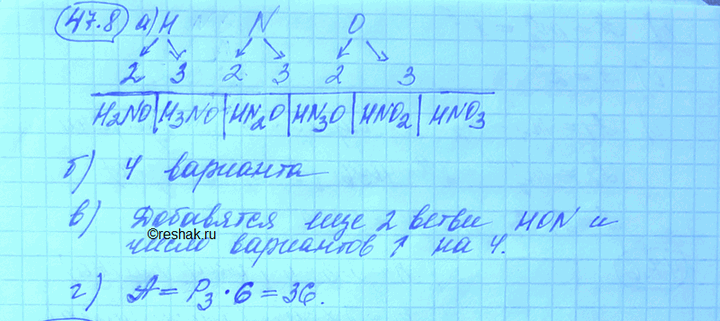 47.8 а) H N O
2 3 2 3 2 3
H₂NO | H₃NO | HN₂O | HN₃O | HNO₂ | HNO₃
б) 4 варианта
в) Добавятся еще 2 ветви HON и
©reshak.ru
число вариантов ↑ на 4.
г) A = P₃ · 6 = 36.